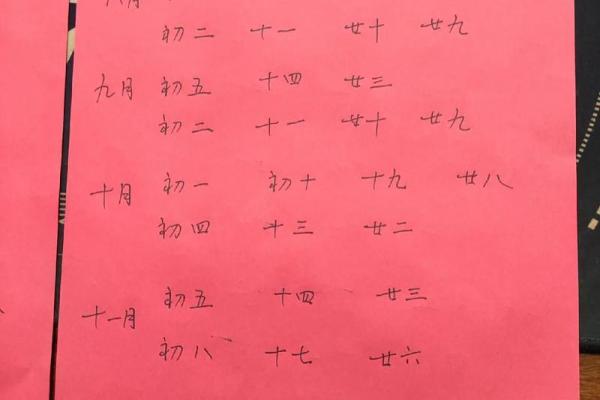 八月
初二 十一 廿十 廿九
九月 初五 十四 廿三
初二 十一 廿十 廿九
十月 初一 初十 十九 廿八
初四 十三 廿二
十一月 初五 十四 廿三
初八 十七 廿六